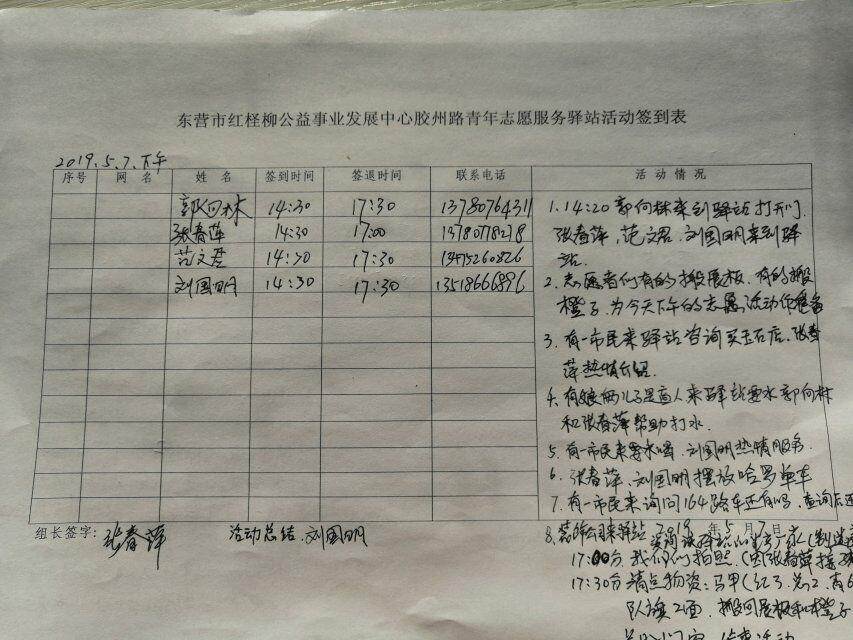 东营市红柽柳公益事业发展中心胶州路青年志愿服务驿站活动签到表
2019.5.7.下午
序号 网名 姓名 签到时间 签退时间 联系电话 活动情况
郭向林 14:30 17:30 13780764311
张春萍 14:30 17:00 13780778278
范文君 14:30 17:30 13475260826
刘国明 14:30 17:30 13518666896
1.14:20郭向林来到驿站打开门.
张春萍,范文君.刘国明来到驿
站.
2.志愿者们有的搬展板.有的搬
橙子.为今天下午的志愿活动作准备
3.有一市民来驿站咨询买玉石店.张春
萍热情介绍.
4.有娘俩儿子是盲人来驿站要水郭向林
和张春萍帮助打水.
5.有一市民来要水喝.刘国明热情服务.
6.张春萍、刘国明摆放哈罗单车
7.有一市民来询问164路车还有吗,查询后还
组长签字: 张春萍 活动总结.刘国明 2019年5月7日
8.装饰公司来驿站
17:00分.我们们拍照.(由张春萍接
17:30分清点物资:马甲(红3.
队旗2面.搬回展板和橙子
结束活动